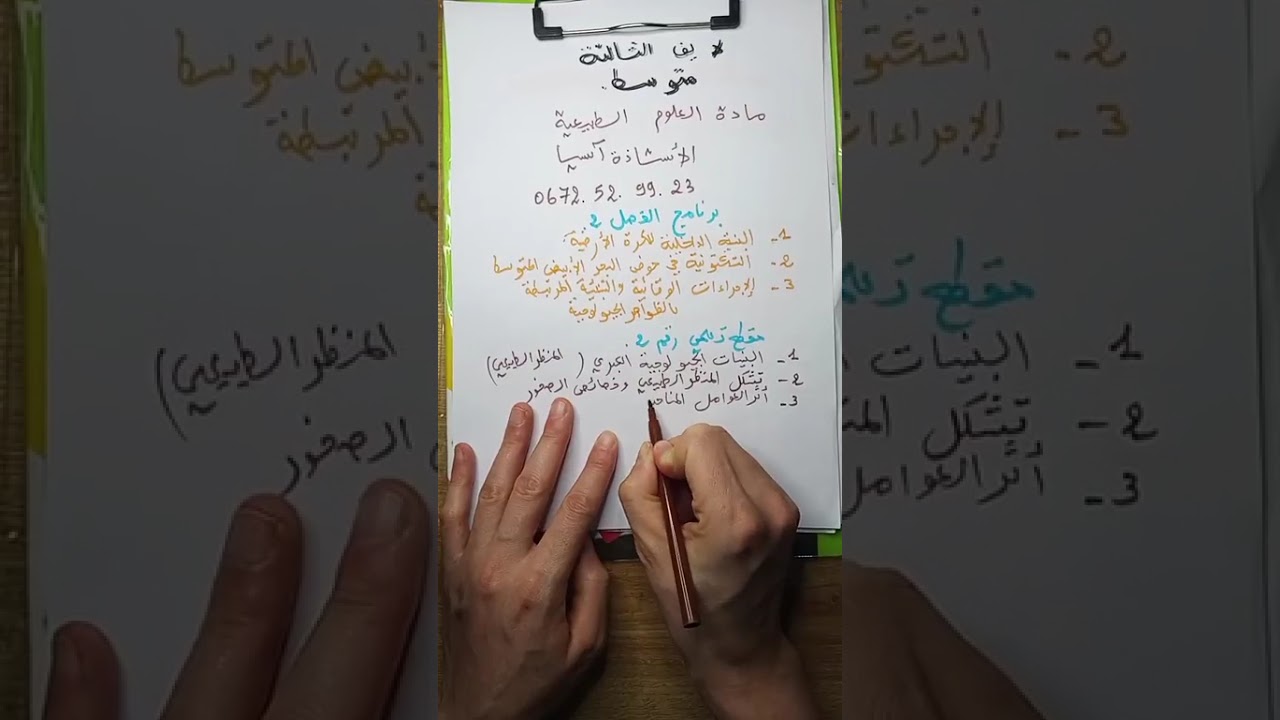 * يف الثالثة
متوسط.
مادة العلوم الطبيعية
الأستاذة آسيا
0672. 52. 99. 23
برنامج الفصل 2
1- البنية الداخلية للكرة الأرضية
2- التكتونية في حوض البحر الأبيض المتوسط
3- الإجراءات الوقائية والتنبئية المرتبطة
بالظواهر الجيولوجية
مقطع تعلمي رقم 2
1- البنيات الجيولوجية (المنظر الطبيعي)
2- تشكل المنظر الطبيعي وخصائص الصخور
3- أثر العوامل